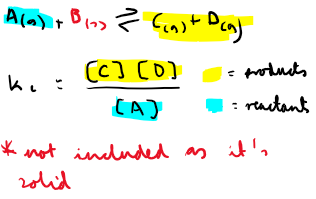 A(g) + B(s) ⇌ C(g) + D(g)
Kc = [C] [D] / [A]
= products
= reactants
* not included as it's
solid